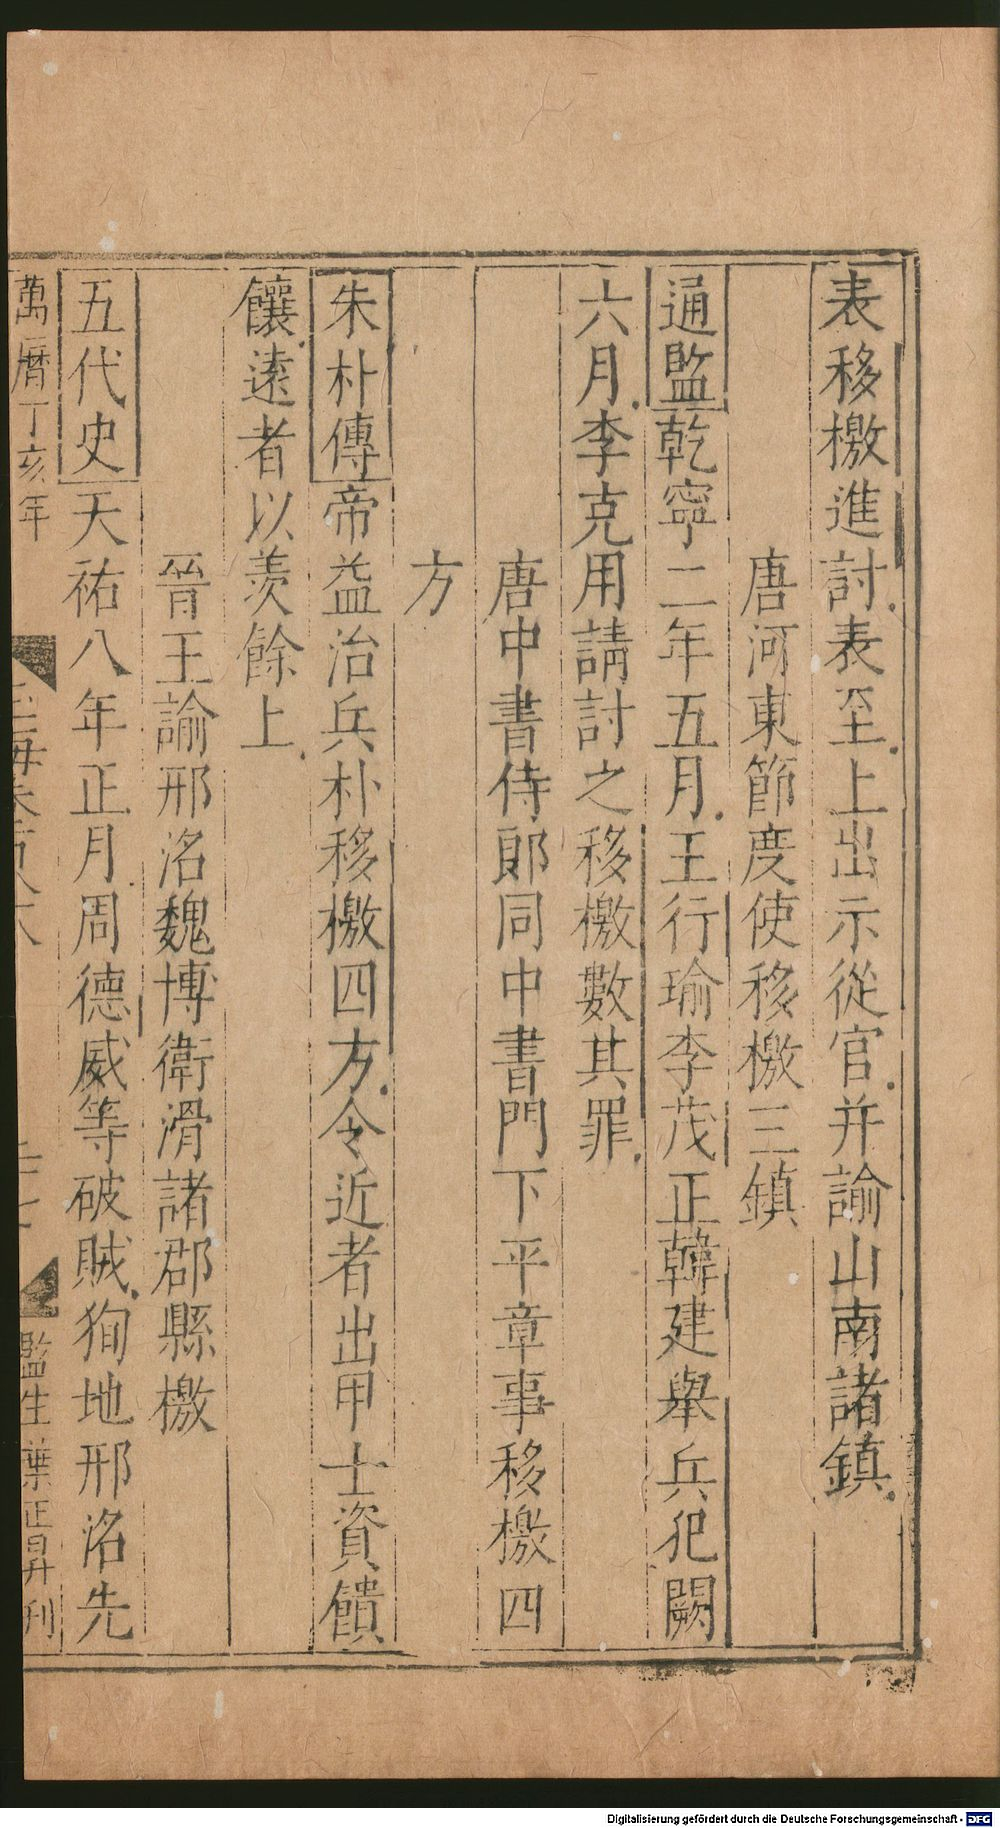 表移檄進討表至上出示從官并諭山南諸鎮
唐河東節度使移檄三鎮
通監乾寧二年五月王行瑜李茂正韓建舉兵犯闕
六月李克用請討之移檄數其罪
唐中書侍郎同中書門下平章事移檄四
方
朱朴傳帝益治兵朴移檄四方令近者出甲士資饋
饟遠者以羡餘上
晉王諭邢洺魏博衛滑諸郡縣檄
五代史天祐八年正月周德威等破賊狥地邢洺先
萬曆丁亥年
玉海卷百八十八
監生葉正昇刊
Digitalisierung gefördert durch die Deutsche Forschungsgemeinschaft - DFG